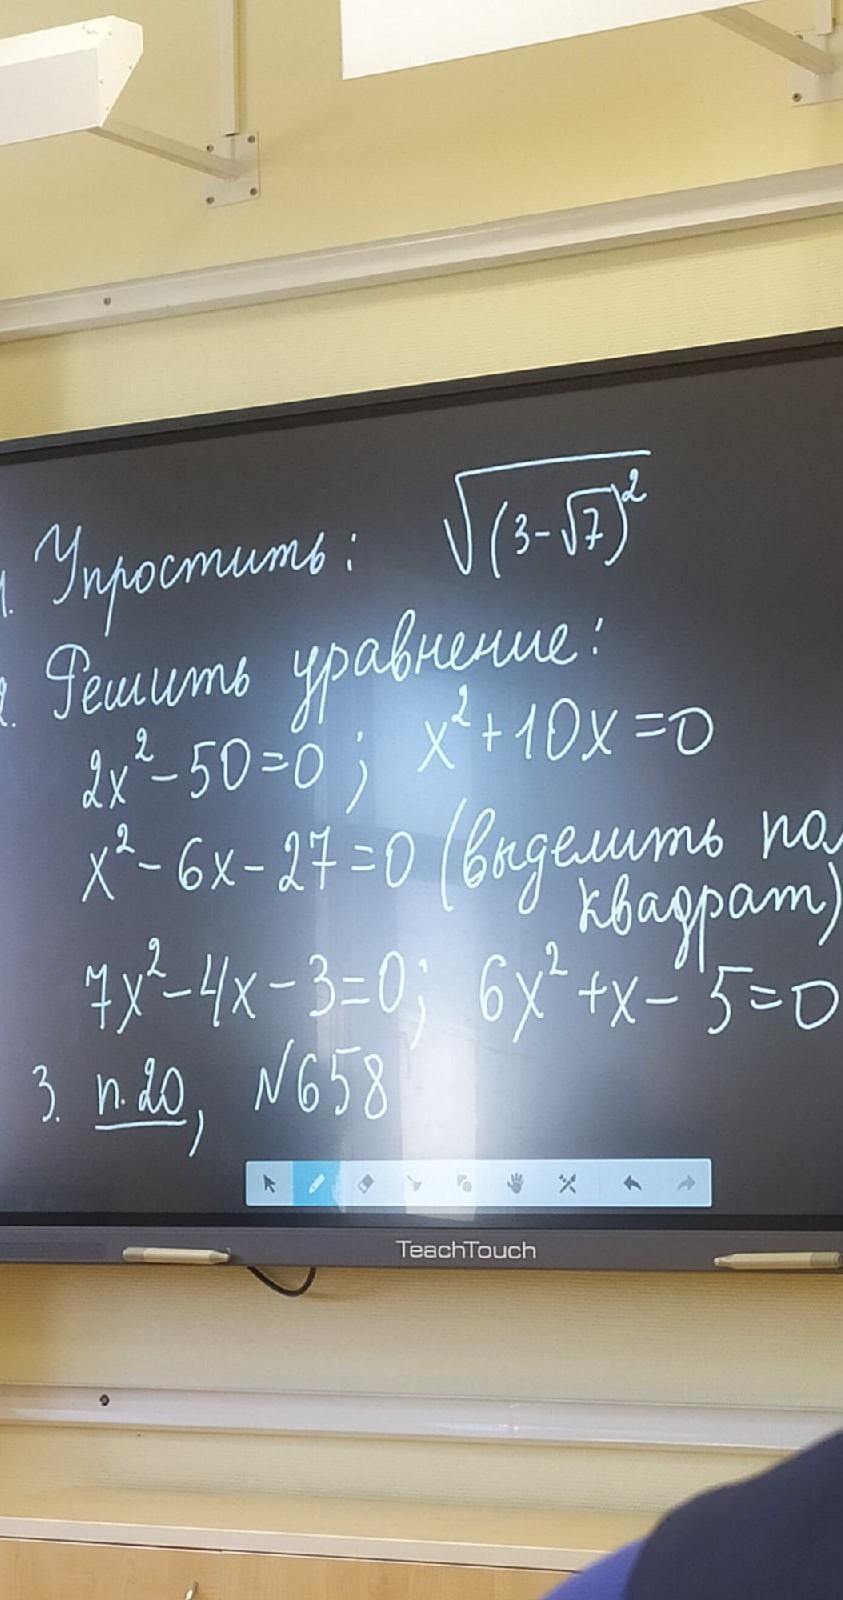 1. Упростить: √(3-√7)²
2. Решить уравнение:
2x²-50=0; x²+10x=0
x²-6x-27=0 (выделить
квадрат)
7x²-4x-3=0; 6x²+x-5=0
3. п.20, №658
TeachTouch